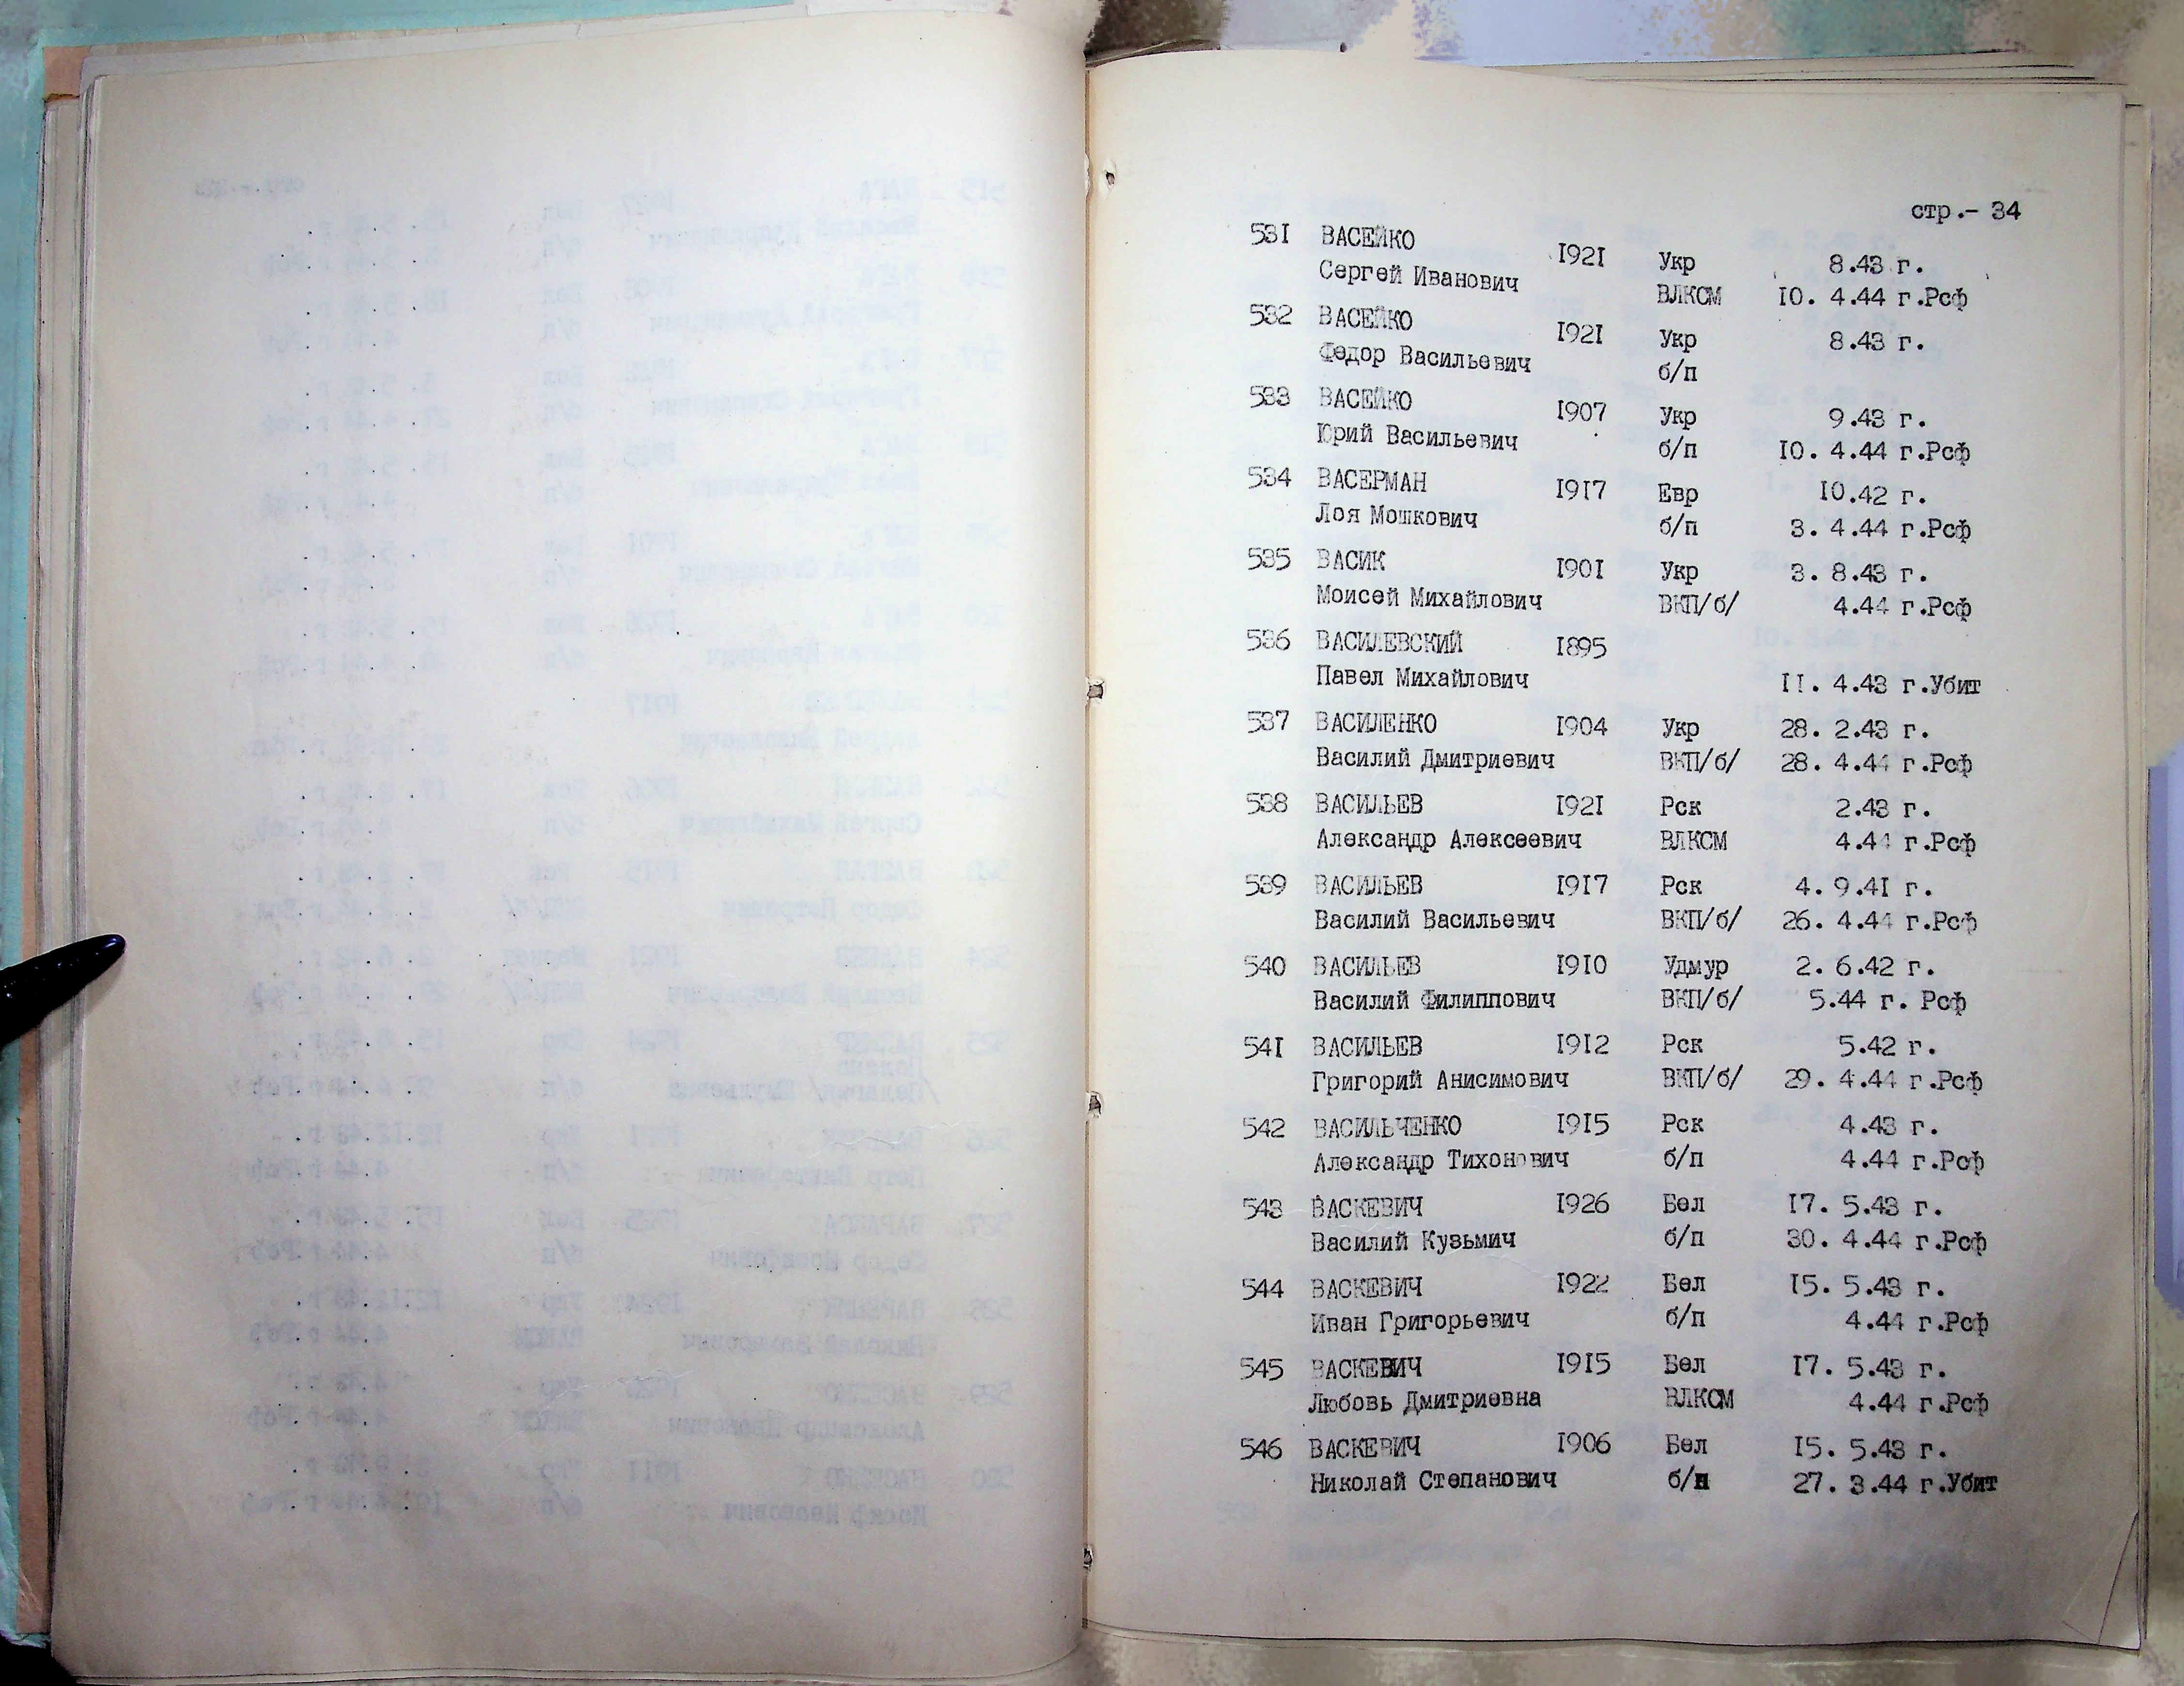 стр.- 34
531 ВАСЕЙКО 1921 Укр 8.43 г.
Сергей Иванович ВЛКСМ 10. 4.44 г.Рсф
532 ВАСЕЙКО 1921 Укр 8.43 г.
Федор Васильевич б/п
533 ВАСЕЙКО 1907 Укр 9.43 г.
Юрий Васильевич б/п 10. 4.44 г.Рсф
534 ВАСЕРМАН 1917 Евр 10.42 г.
Лоя Мошкович б/п 3. 4.44 г.Рсф
535 ВАСИК 1901 Укр 3. 8.43 г.
Моисей Михайлович ВКП/б/ 4.44 г.Рсф
536 ВАСИЛЕВСКИЙ 1895
Павел Михайлович 11. 4.43 г.Убит
537 ВАСИЛЕНКО 1904 Укр 28. 2.43 г.
Василий Дмитриевич ВКП/б/ 28. 4.44 г.Рсф
538 ВАСИЛЬЕВ 1921 Рск 2.43 г.
Александр Алексеевич ВЛКСМ 4.44 г.Рсф
539 ВАСИЛЬЕВ 1917 Рск 4. 9.41 г.
Василий Васильевич ВКП/б/ 26. 4.44 г.Рсф
540 ВАСИЛЬЕВ 1910 Удмур 2. 6.42 г.
Василий Филиппович ВКП/б/ 5.44 г. Рсф
541 ВАСИЛЬЕВ 1912 Рск 5.42 г.
Григорий Анисимович ВКП/б/ 29. 4.44 г.Рсф
542 ВАСИЛЬЧЕНКО 1915 Рск 4.43 г.
Александр Тихонович б/п 4.44 г.Рсф
543 ВАСКЕВИЧ 1926 Бел 17. 5.43 г.
Василий Кузьмич б/п 30. 4.44 г.Рсф
544 ВАСКЕВИЧ 1922 Бел 15. 5.43 г.
Иван Григорьевич б/п 4.44 г.Рсф
545 ВАСКЕВИЧ 1915 Бел 17. 5.43 г.
Любовь Дмитриевна ВЛКСМ 4.44 г.Рсф
546 ВАСКЕВИЧ 1906 Бел 15. 5.43 г.
Николай Степанович б/п 27. 3.44 г.Убит